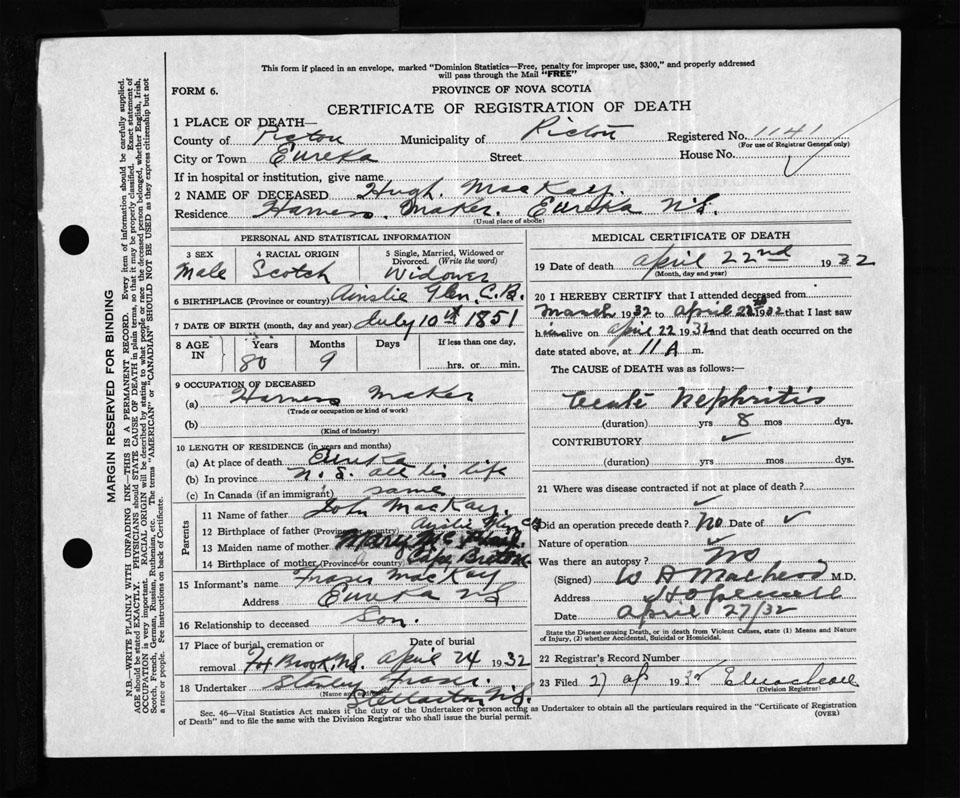 This form if placed in an envelope, marked "Dominion Statistics—Free, penalty for improper use, $300," and properly addressed
will pass through the Mail "FREE"
FORM 6.
PROVINCE OF NOVA SCOTIA
CERTIFICATE OF REGISTRATION OF DEATH
1 PLACE OF DEATH—
County of Pictou Municipality of Pictou Registered No. 1141
(For use of Registrar General only)
City or Town Eureka Street House No.
If in hospital or institution, give name
2 NAME OF DECEASED Hugh MacKay.
Residence Harness Maker. Eureka N.S.
(Usual place of abode)
PERSONAL AND STATISTICAL INFORMATION
3 SEX Male
4 RACIAL ORIGIN Scotch
5 Single, Married, Widowed or Divorced. (Write the word) Widower
6 BIRTHPLACE (Province or country) Ainslie Glen, C.B.
7 DATE OF BIRTH (month, day and year) July 10th 1851
8 AGE IN Years 80 Months 9 Days If less than one day, hrs. or min.
9 OCCUPATION OF DECEASED
(a) Harness Maker
(Trade or occupation or kind of work)
(b)
(Kind of industry)
10 LENGTH OF RESIDENCE (in years and months)
(a) At place of death Eureka
(b) In province N.S. all his life
(c) In Canada (if an immigrant) same
Parents
11 Name of father John MacKay.
12 Birthplace of father (Province or country) Ainslie Glen CB
13 Maiden name of mother Mary
14 Birthplace of mother (Province or country) Cape Breton
15 Informant's name Fraser MacKay
Address Eureka NS
16 Relationship to deceased Son.
17 Place of burial, cremation or removal Brook, NS. Date of burial April 24 1932
18 Undertaker Stanley Fraser.
(Name and address)
Stellarton N.S.
MEDICAL CERTIFICATE OF DEATH
19 Date of death April 22nd 1932
(Month, day and year)
20 I HEREBY CERTIFY that I attended deceased from
March 1932 to April 22 1932 that I last saw
him alive on april 22 1932 and that death occurred on
date stated above, at 11 A m.
The CAUSE of DEATH was as follows:—
Nephritis
(duration) yrs 8 mos dys.
CONTRIBUTORY
(duration) yrs mos dys.
21 Where was disease contracted if not at place of death?
Did an operation precede death? No Date of
Nature of operation
Was there an autopsy? No
(Signed) W A MacLeod M.D.
Address Hopewell
Date April 27/32
State the Disease causing Death, or in death from Violent Causes, state (1) Means and Nature
of Injury, (2) whether Accidental, Suicidal or Homicidal.
22 Registrar's Record Number
23 Filed 27 ap 1932
(Division Registrar)
Sec. 46—Vital Statistics Act makes it the duty of the Undertaker or person acting as Undertaker to obtain all the particulars required in the "Certificate of Registration
of Death" and to file the same with the Division Registrar who shall issue the burial permit.
(OVER)
MARGIN RESERVED FOR BINDING
N.B.—WRITE PLAINLY WITH UNFADING INK—THIS IS A PERMANENT RECORD. Every item of information should be carefully supplied.
AGE should be stated EXACTLY. PHYSICIANS should STATE CAUSE OF DEATH in plain terms, so that it may be properly classified. Exact statement of
OCCUPATION is very important. RACIAL ORIGIN will be described by stating to what people or race the deceased person belonged, whether English, Irish,
Scotch, French, German, Russian, Ruthenian, etc. The terms "AMERICAN" or "CANADIAN" SHOULD NOT BE USED as they express citizenship but not
a race or people. See instructions on back of Certificate.